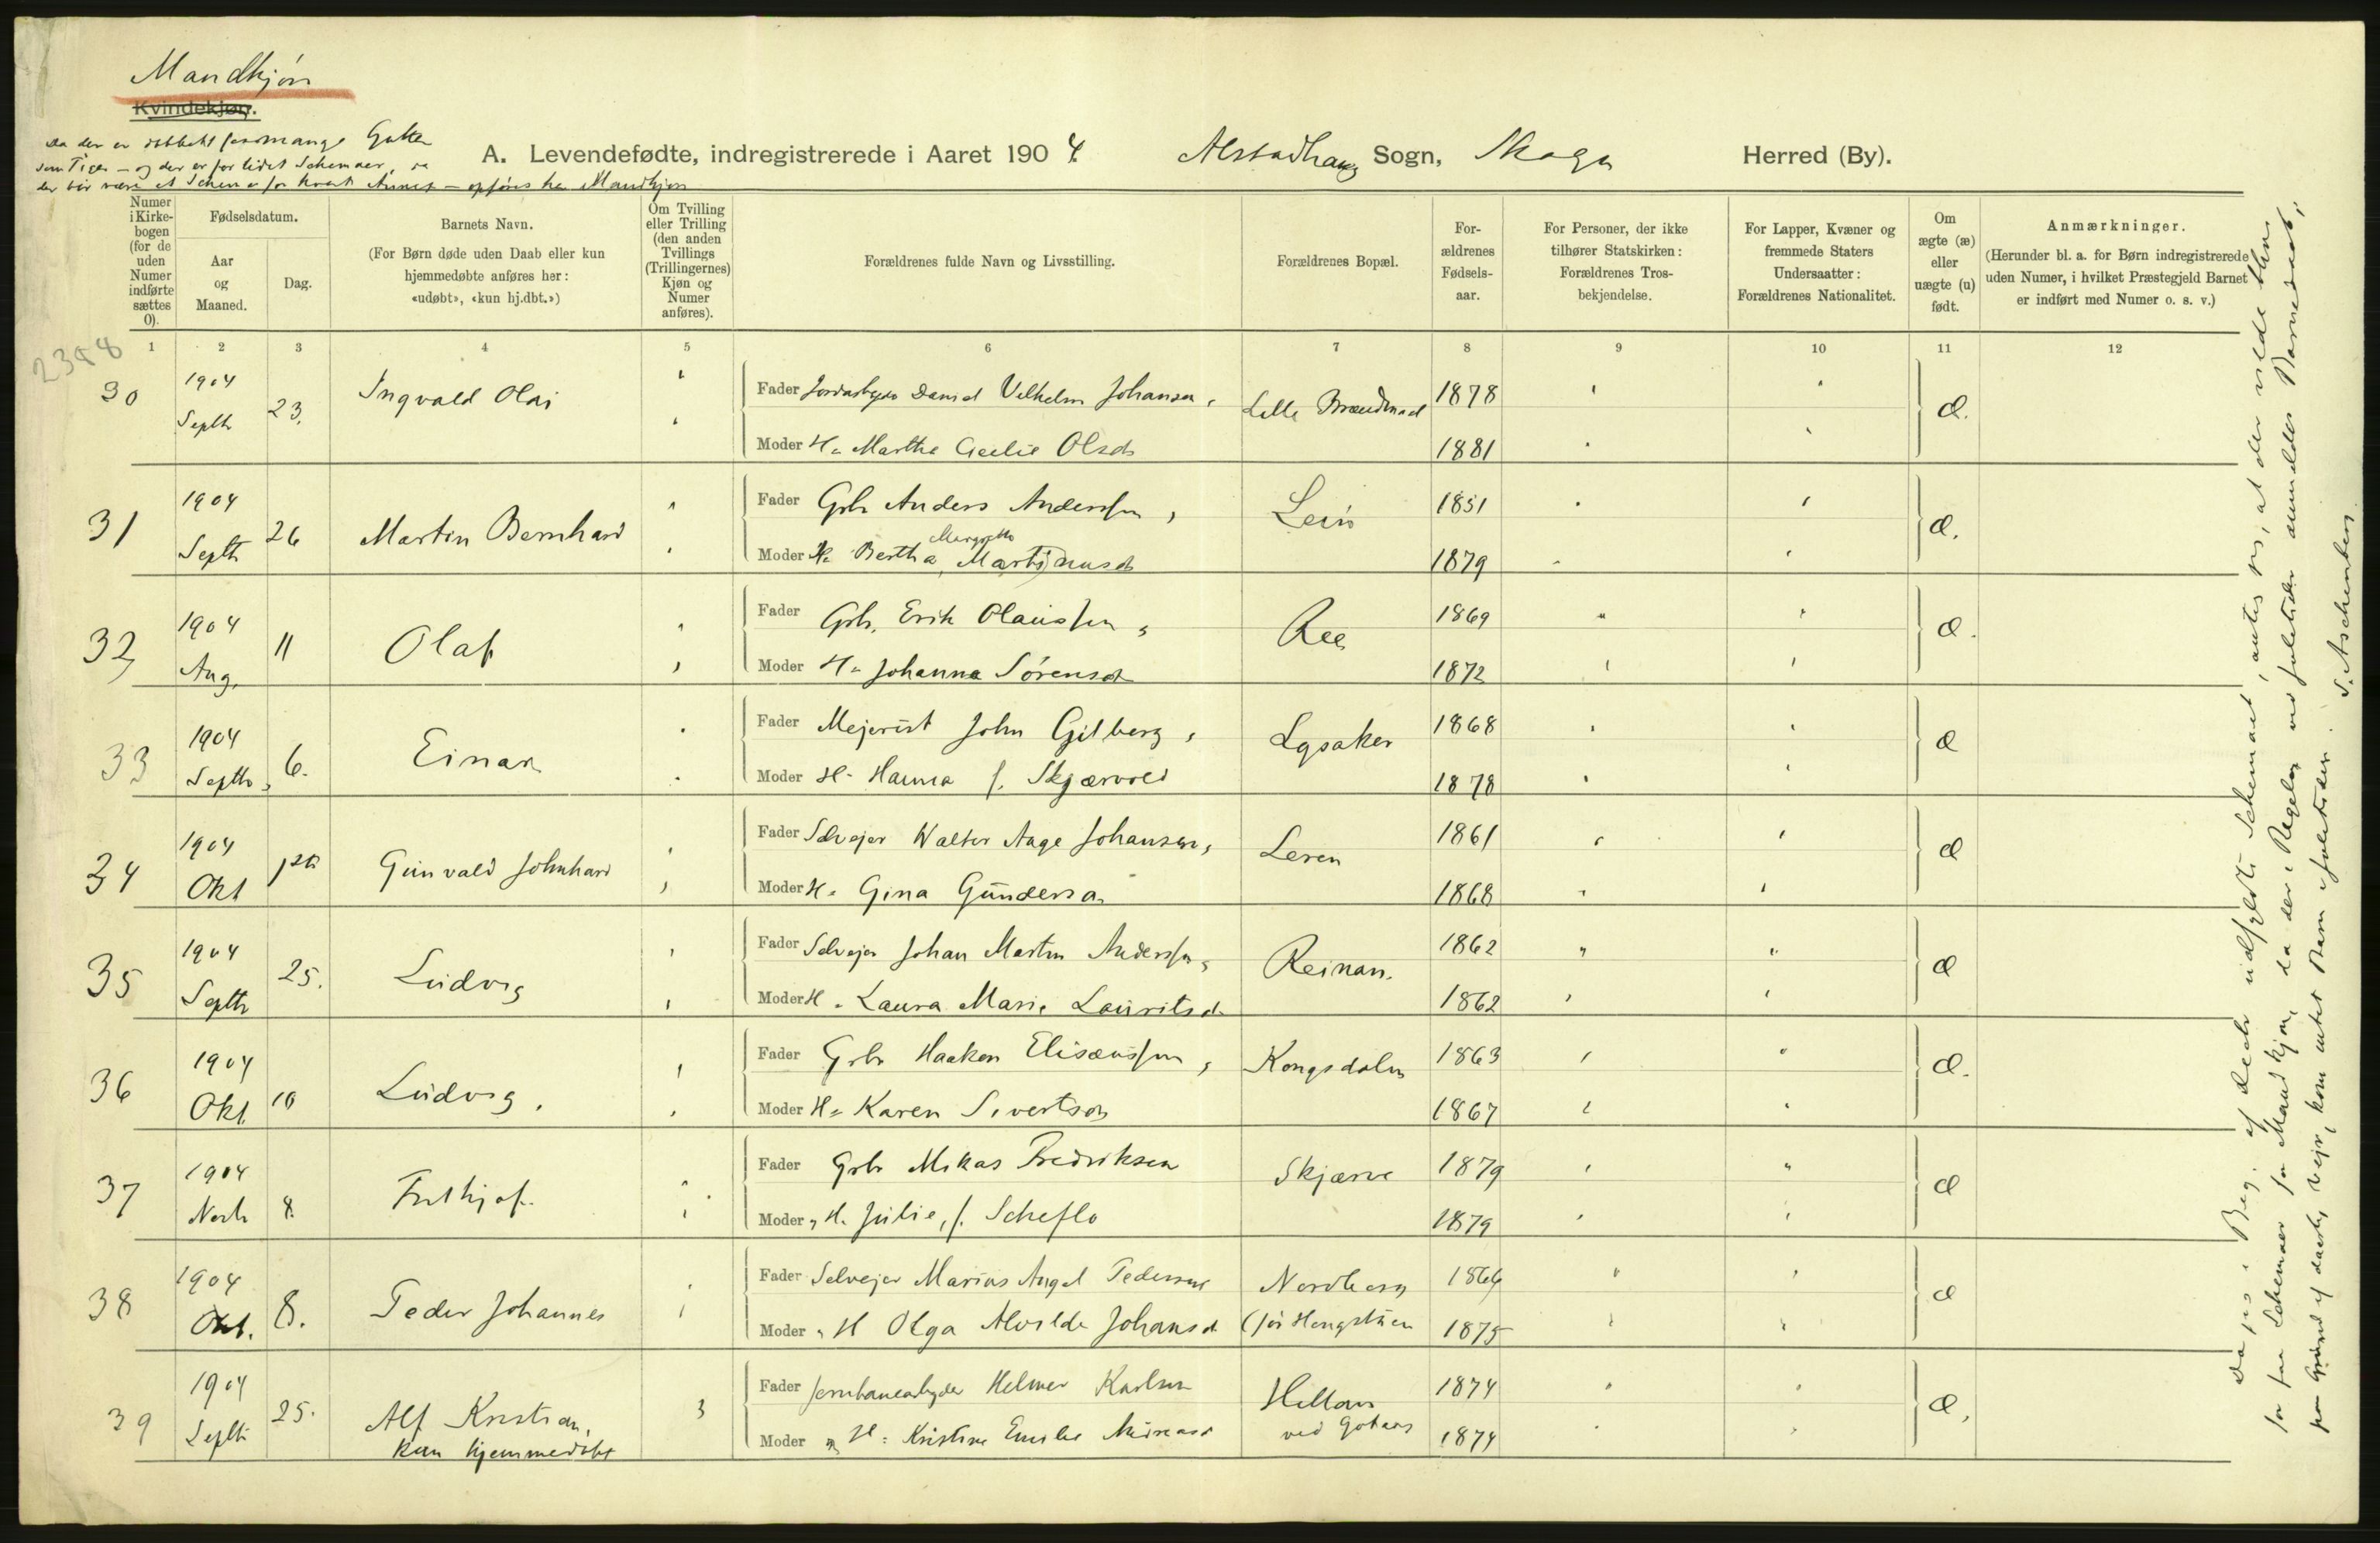 Mandkjøn
Kvindekjøn.
Da der er dobbelt saa mange Gutter
som Piger – og der er for lidet Schemaer, da
der bør være et Schema for hvert Kjøn – opføres her Mandkjøn
A. Levendefødte, indregistrerede i Aaret 1904. Alstadhaug Sogn, Skogn Herred (By).
Numer i Kirkebogen (for de uden Numer indførte sættes 0).
Fødselsdatum.
Aar og Maaned.
Dag.
Barnets Navn.
(For Børn døde uden Daab eller kun hjemmedøbte anføres her: «udøbt», «kun hj.dbt.»)
Om Tvilling eller Trilling (den anden Tvillings (Trillingernes) Kjøn og Numer anføres).
Forældrenes fulde Navn og Livsstilling.
Forældrenes Bopæl.
Forældrenes Fødselsaar.
For Personer, der ikke tilhører Statskirken: Forældrenes Trosbekjendelse.
For Lapper, Kvæner og fremmede Staters Undersaatter: Forældrenes Nationalitet.
Om ægte (æ) eller uægte (u) født.
Anmærkninger.
(Herunder bl. a. for Børn indregistrerede uden Numer, i hvilket Præstegjeld Barnet er indført med Numer o. s. v.)
1 2 3 4 5 6 7 8 9 10 11 12
2348
30 1904 Septbr 23. Ingvald Olai Fader Daniel Vilhelm Johansen, Lille 1878 æ.
Moder H. Martha Cecilie Olsd 1881
31 1904 Septbr 26 Martin Bernhard Fader Gbr Anders Anderssen, Lein 1851 æ.
Moder H. Bertha Margrethe Martinusd 1879
32 1904 Aug. 11 Olaf Fader Gbr. Erik Olaussen, Ree 1869 æ.
Moder H. Johanna Sørensd 1872
33 1904 Septbr 6. Einar Fader Mejerist John Gilberg, Lysaker 1868 æ
Moder H. Hanna f. Skjærvold 1878
34 1904 Okt 1ste Gunvald Johnhard Fader Selvejer Walter Aage Johansen, Leren 1861 æ
Moder H. Gina Gundersd. 1868
35 1904 Septbr 25. Ludvig Fader Selvejer Johan Martin Anderssen, Reinan. 1862 æ
Moder H. Laura Marie Lauritsd. 1862
36 1904 Okt. 10 Ludvig. Fader Gbr Haakon Elisæussen, Kongsdalen 1863 æ.
Moder H. Karen Sivertsd 1867
37 1904 Novbr 8. Frithjof. Fader Gbr Mikas Fredriksen Skjærve 1879 æ
Moder H. Julie, f. Scheflo 1879
38 1904 Okt. 8. Peder Johannes Fader Selvejer Marius Angel Pedersen Nordberg 1866 æ
Moder H Olga Alvilde Johansd 1875
39 1904 Septbr 25. Alf Kristian, Fader Jernbanearbejder Helmer Karlsen 1874 æ.
kun hjemmedøbt Moder H. Kristine Emilie ved Gotaas 1874
Da jeg i Beg. af dette udfyldte Schemaet, antog jeg, at der vilde blive
for faa Schemaer for Mandkjøn, da der i Regelen ved Juletider anmeldes Barnedaab,
paa Grund af daarligt Vejr, kom intet Barn i Juletiden. S. Aschenberg